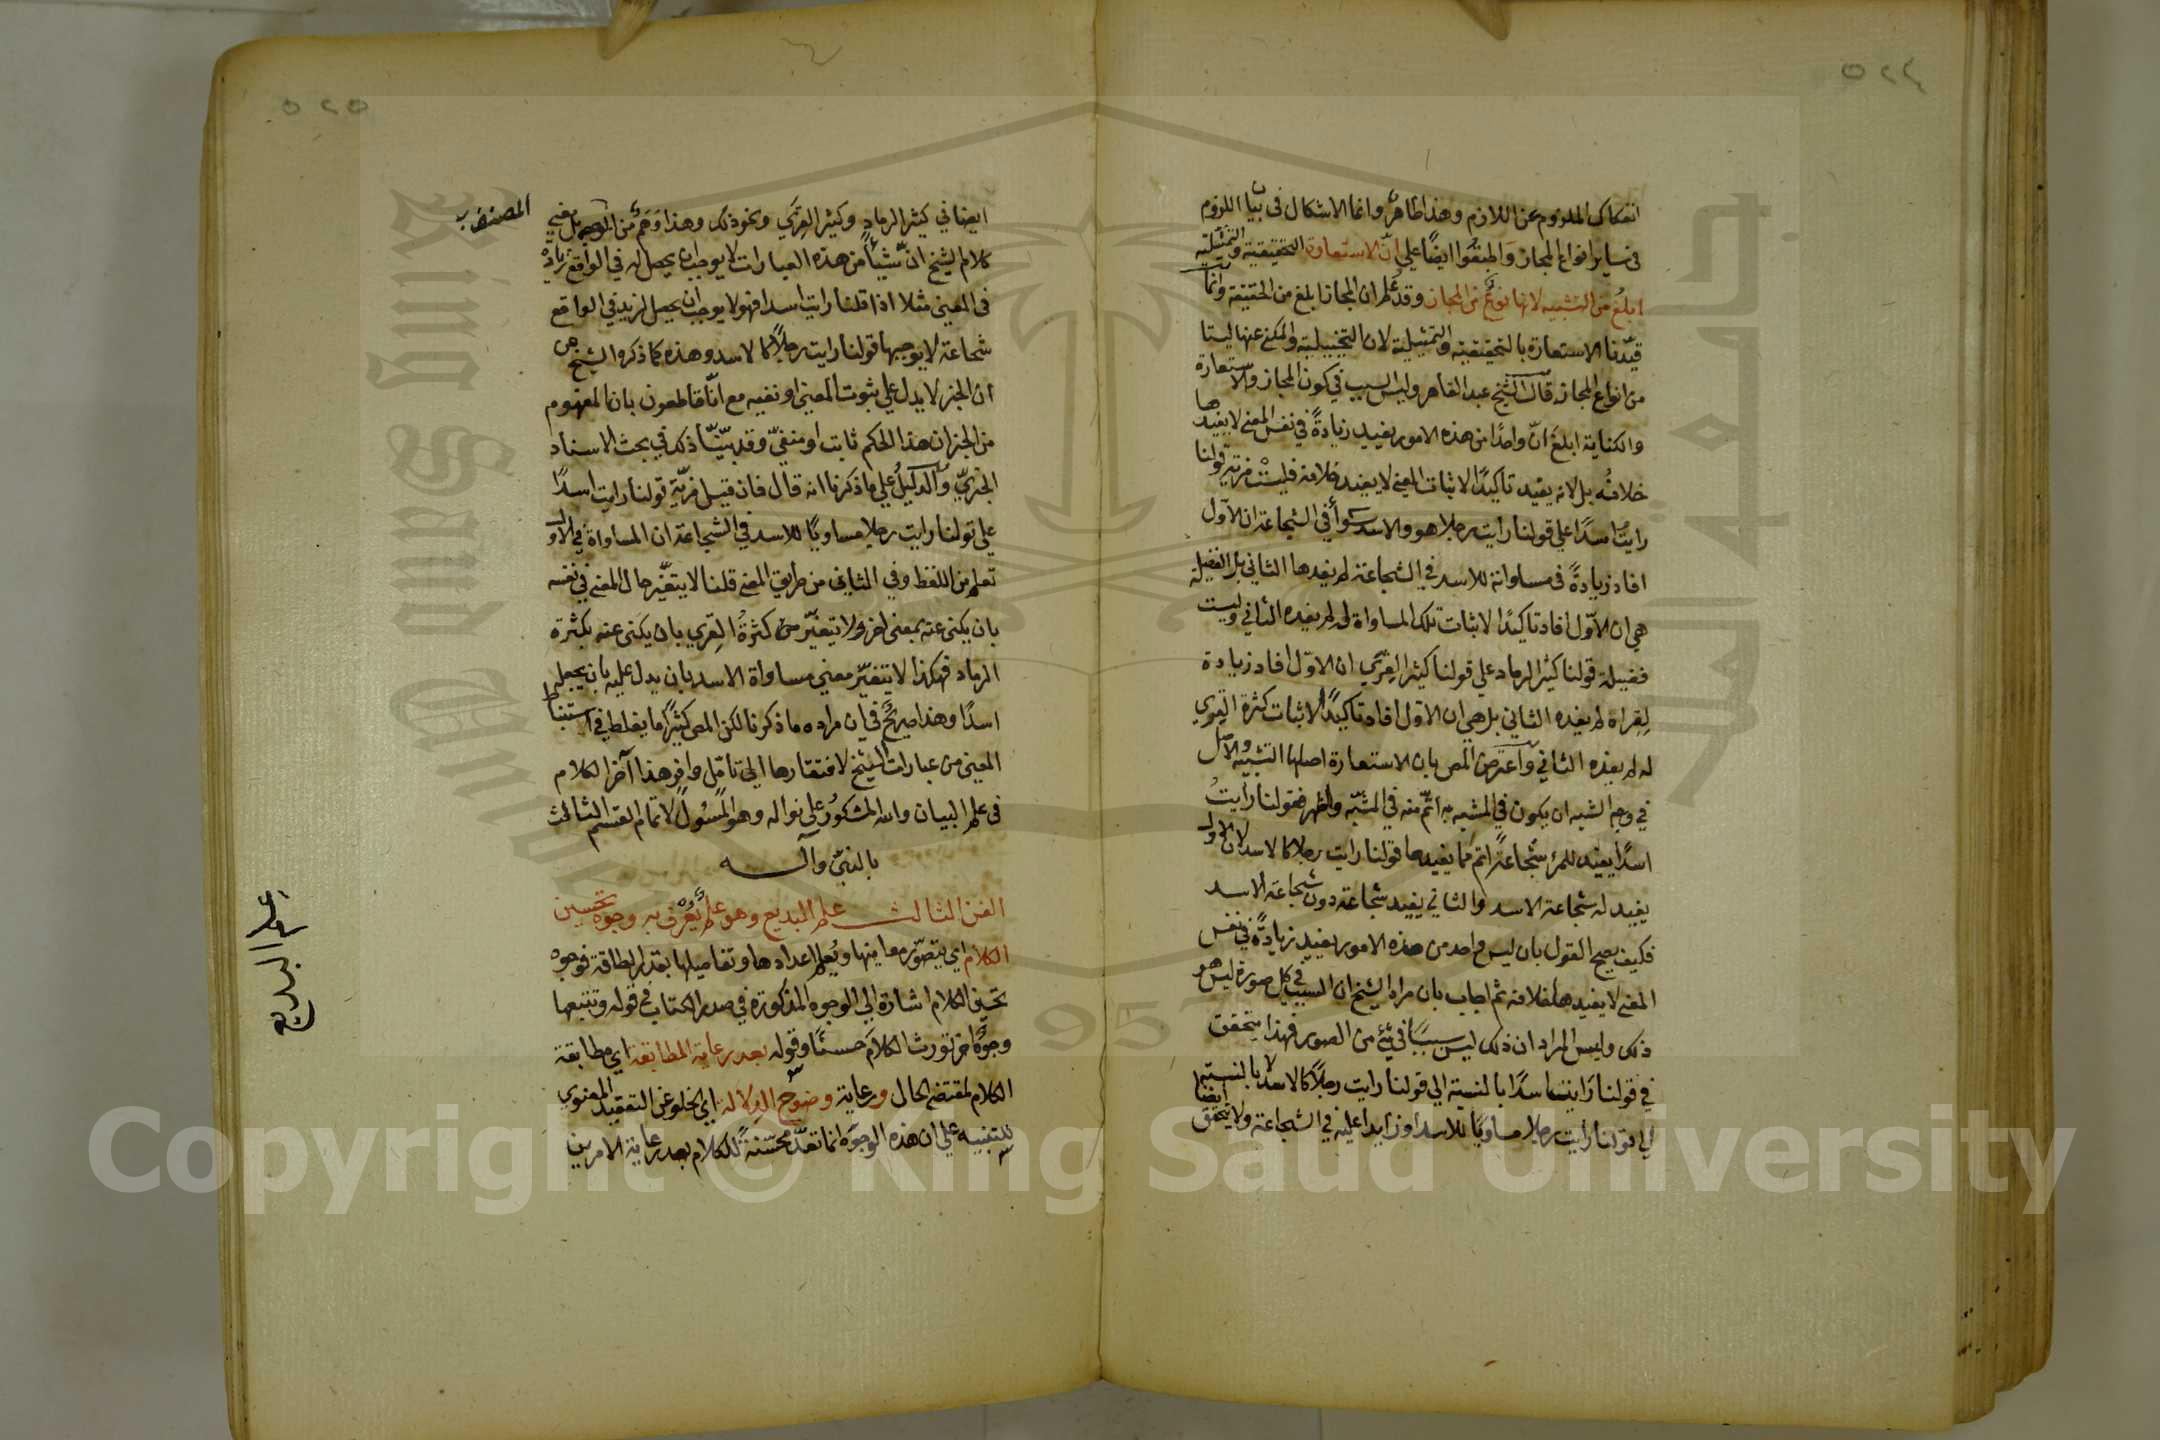 ٥٢٤
انفكاك الملزوم عن اللازم وهذا ظاهر وانما الاشكال في بيان اللزوم
في ساير انواع المجاز واطبقوا ايضًا على ان الاستعارة التحقيقية والتمثيلية
ابلغ من التشبيه لانها نوع من المجاز وقد علم ان المجاز ابلغ من الحقيقة وانما
قيّدنا الاستعارة بالتحقيقية والتمثيلية لان التخييلية والمكني عنها ليستا
من انواع المجاز قال الشيخ عبد القاهر وليس السبب في كون المجاز والاستعارة
والكناية ابلغ انّ واحدًا من هذه الامور يفيد زيادةً في نفس المعنى لا يفيدها
خلافُه بل لانه يفيد تاكيدًا لاثبات المعنى لا يفيده خلافه فليست مزية قولنا
رايت اسدًا على قولنا رايت رجلا هو والاسد سواء في الشجاعة ان الاوّل
افاد زيادةً في مساواته للاسد في الشجاعة لم يفدها الثاني بل الفضيلة
هي ان الاوّل افاد تاكيدًا لاثبات تلك المساواة له لم يفده الثاني وليست
فضيلة قولنا كثير الرماد على قولنا كثير القرى ان الاوّل افاد زيادة
لقراه لم يفده الثاني بل هي ان الاول افاد تاكيدًا لاثبات كثرة القرى
له لم يفده الثاني واعترض المص بان الاستعارة اصلها التشبيه والاصل
في وجه الشبه ان يكون في المشبه به اتمّ منه في المشبّه واظهر فقولنا رايتُ
اسدًا يفيد للمرء شجاعةً اتم مما يفيدها قولنا رايت رجلا كالاسد لان الاول
يفيد له شجاعة الاسد والثاني يفيد شجاعة دون شجاعة الاسد
فكيف يصح القول بان ليس واحد من هذه الامور يفيد زيادةً في نفس
المعنى لا يفيدها خلافه ثم اجاب بان مراد الشيخ ان السبب في كل صورة ليس هو
ذلك وليس المراد ان ذلك ليس سببًا في شئ من الصور فهذا يتحقق
في قولنا رايت اسدًا بالنسبة الى قولنا رايت رجلاً كالاسد لا بالنسبة
الى قولنا رايت رجلا مساويًا للاسد او زايدا عليه في الشجاعة ولا يتحقق
ايضا
٥٢٥
ايضا في كثير الرماد وكثير القرى ونحو ذلك وهذا وهمٌ من المصنف بل معنى
المصنف
كلام الشيخ ان شيئًا من هذه العبارات لا يوجب ان يحصل له في الواقع زيادة
في المعنى مثلا اذا قلنا رايت اسدا فهو لا يوجب ان يحصل لزيد في الواقع
شجاعة لا يوجبها قولنا رايت رجلاً كالاسد وهذه كما ذكره الشيخ من
ان الخبر لا يدل على ثبوت المعنى او نفيه مع انّا قاطعون بان المفهوم
من الخبر ان هذا الحكم ثابت او منفيّ وقد بيّنّا ذلك في بحث الاسناد
الخبريّ والدليل على ما ذكرنا انه قال فان قيل مزيّة قولنا رايت اسدًا
على قولنا رايت رجلا مساويًا للاسد في الشجاعة ان المساواة في الاول
تعلم من اللفظ وفي الثاني من طريق المعنى قلنا لا يتغيّر حال المعنى في نفسه
بان يكنى عنه بمعنى اخر ولا يتغيّر معنى كثرة القِرى بان يكنى عنه بكثرة
الرماد فهكذا لا يتغيّر معنى مساواة الاسد بان يدل عليه بان يجعله
اسدًا وهذا صريحٌ في ان مراده ما ذكرنا لكن المص كثيرًا ما يغلط في استنباط
المعنى من عبارات الشيخ لافتقارها الى تامّل وافر هذا آخر الكلام
في علم البيان والله المشكورُ على نواله وهو المسؤول لاتمام القسم الثالث
بالنبيّ وآله
الفن الثالث علم البديع وهو علم يُعرف به وجوه تحسين
الكلام اي يتصوّر معانيها ويُعلم اعدادها وتفاصيلها بقدر الطاقة فوجوه
تحسين الكلام اشارة الى الوجوه المذكورة في صدر الكتاب في قوله وتتبعها
وجوهٌ اخر تورث الكلامَ حسنًا وقوله بعد رعاية المطابقة اي مطابقة
الكلام لمقتضى الحال ورعاية وضوح الدلالة اي الخلو عن التعقيد المعنوي
للتنبيه على ان هذه الوجوه انما تعدّ محسّنةً للكلام بعد رعاية الامرين
علم البديع
Copyright © King Saud University
King Saud University
1957